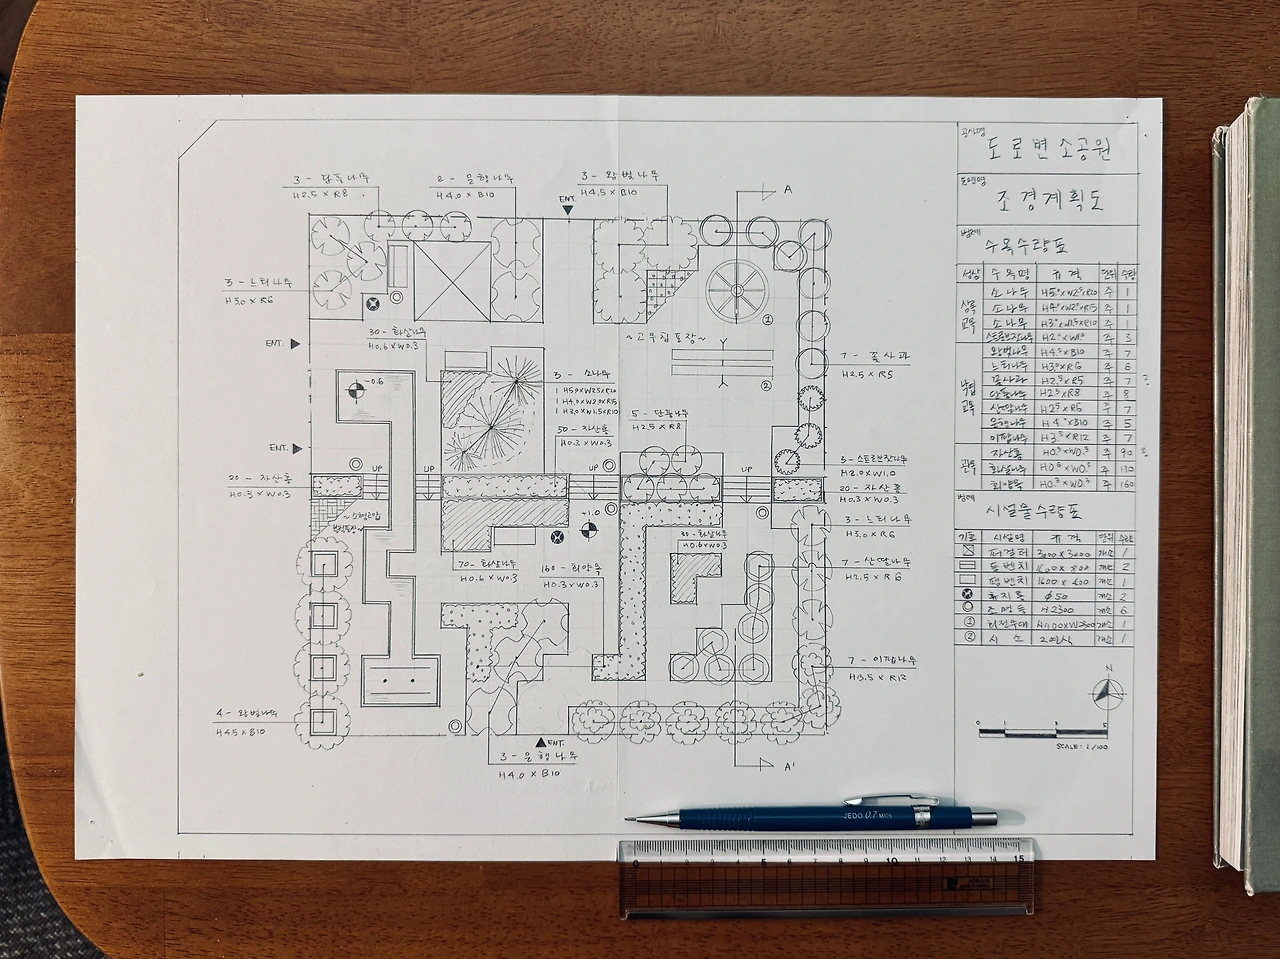 공사명
도로변소공원
도면명
조경계획도
범례
수목수량표
성상 수목명 규격 단위 수량
상록교목
소나무 H5.0×W2.5×R20 주 1
소나무 H4.0×W2.0×R15 주 1
소나무 H3.0×W1.5×R10 주 1
스트로브잣나무 H2.0×W1.0 주 3
낙엽교목
왕벚나무 H4.5×B10 주 7
느티나무 H3.0×R6 주 6
꽃사과 H2.5×R5 주 7
단풍나무 H2.5×R8 주 8
산딸나무 H2.5×R6 주 7
은행나무 H4.0×B10 주 5
이팝나무 H3.5×R12 주 7
관목
자산홍 H0.3×W0.3 주 90
화살나무 H0.6×W0.3 주 130
회양목 H0.3×W0.3 주 160
범례
시설물수량표
기호 시설명 규격 단위 수량
퍼걸러 3000×3000 개소 1
등벤치 개소 2
평벤치 1600×400 개소 1
휴지통 φ50 개소 2
조명등 H2300 개소 6
① 회전무대 개소 1
② 시소 2연식 개소 1
N
0 1 3 5
SCALE: 1/100
3-단풍나무
H2.5×R8
2-은행나무
H4.0×B10
3-왕벚나무
H4.5×B10
ENT.
A
3-느티나무
H3.0×R6
①
30-화살나무
H0.6×W0.3
~고무칩포장~
ENT.
7-꽃사과
H2.5×R5
②
-0.6
3-소나무
1 H5.0×W2.5×R20
1 H4.0×W2.0×R15
1 H3.0×W1.5×R10
5-단풍나무
H2.5×R8
50-자산홍
H0.3×W0.3
ENT.
3-스트로브잣나무
H2.0×W1.0
UP UP UP UP
20-자산홍
H0.3×W0.3
20-자산홍
H0.3×W0.3
~소형고압
블럭포장~
+1.0
3-느티나무
H3.0×R6
30-화살나무
H0.6×W0.3
70-화살나무
H0.6×W0.3
160-회양목
H0.3×W0.3
7-산딸나무
H2.5×R6
7-이팝나무
H3.5×R12
4-왕벚나무
H4.5×B10
ENT.
3-은행나무
H4.0×B10
A'
JEDO 0.7
0 1 2 3 4 5 6 7 8 9 10 11 12 13 14 15